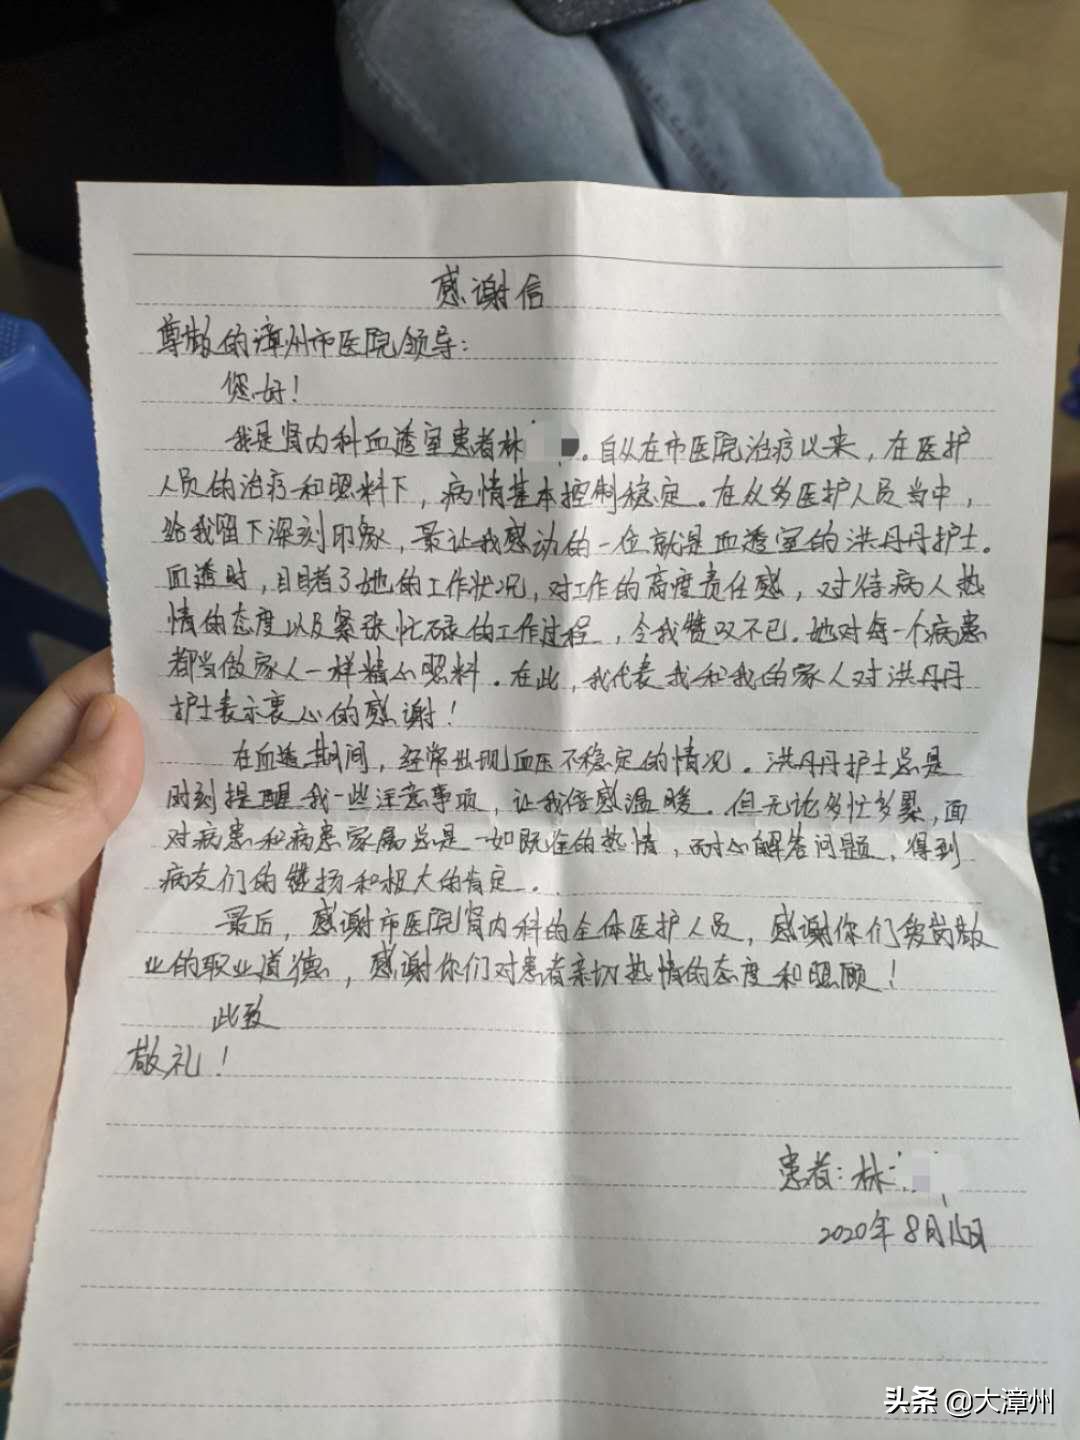 感谢信
尊敬的漳州市医院领导:
您好!
我是肾内科血透室患者林 。自从在市医院治疗以来,在医护
人员的治疗和照料下,病情基本控制稳定。在众多医护人员当中,
给我留下深刻印象,最让我感动的一位就是血透室的洪丹丹护士。
血透时,目睹了她的工作状况,对工作的高度责任感,对待病人热
情的态度以及紧张忙碌的工作过程,令我赞叹不已。她对每一个病患
都当做家人一样精心照料。在此,我代表我和我的家人对洪丹丹
护士表示衷心的感谢!
在血透期间,经常出现血压不稳定的情况。洪丹丹护士总是
时刻提醒我一些注意事项,让我倍感温暖。但无论多忙多累,面
对病患和病患家属总是一如既往的热情,耐心解答问题,得到
病友们的赞扬和极大的肯定。
最后,感谢市医院肾内科的全体医护人员,感谢你们爱岗敬
业的职业道德,感谢你们对患者亲切热情的态度和照顾!
此致
敬礼!
患者:林
2020年8月15日
头条 @大漳州